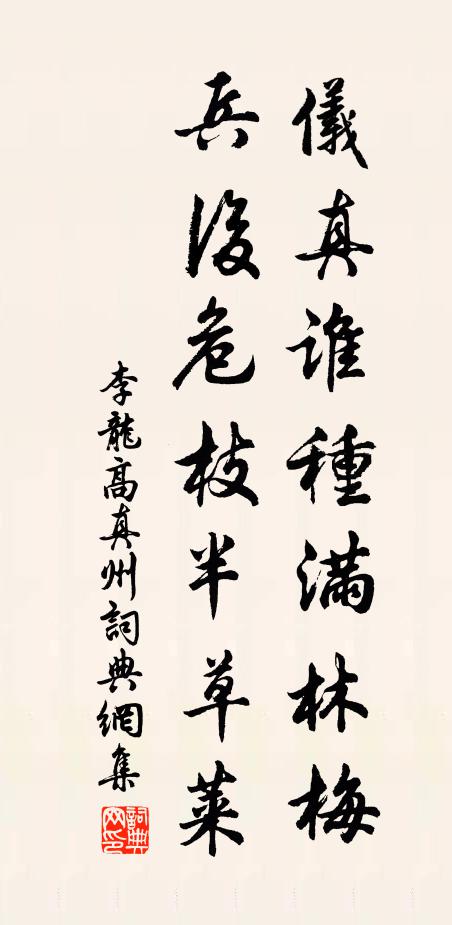 儀真誰種満林梅
兵後危枝半草萊
李龍高真州詞典網集
詞典網印